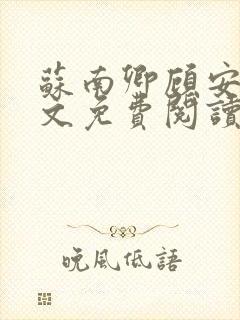 蘇南卿顧安
文免費閱讀
晚風低語